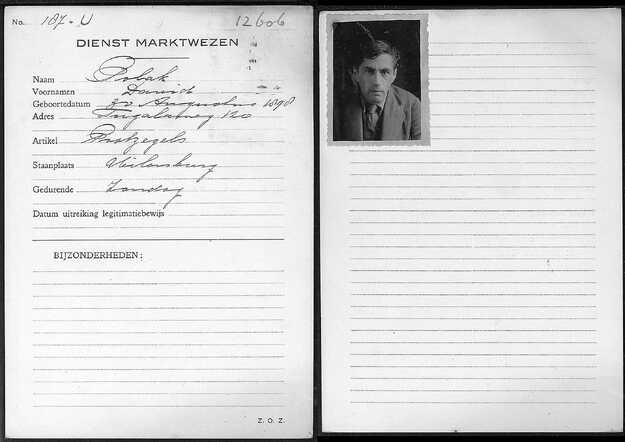 No. 187-U 12606
DIENST MARKTWEZEN
Naam Polak
Voornamen David
Geboortedatum Augustus 1898
Adres 120
Artikel Postzegels
Staanplaats Uilenburg
Gedurende Zondag
Datum uitreiking legitimatiebewijs
BIJZONDERHEDEN:
Z. O. Z.